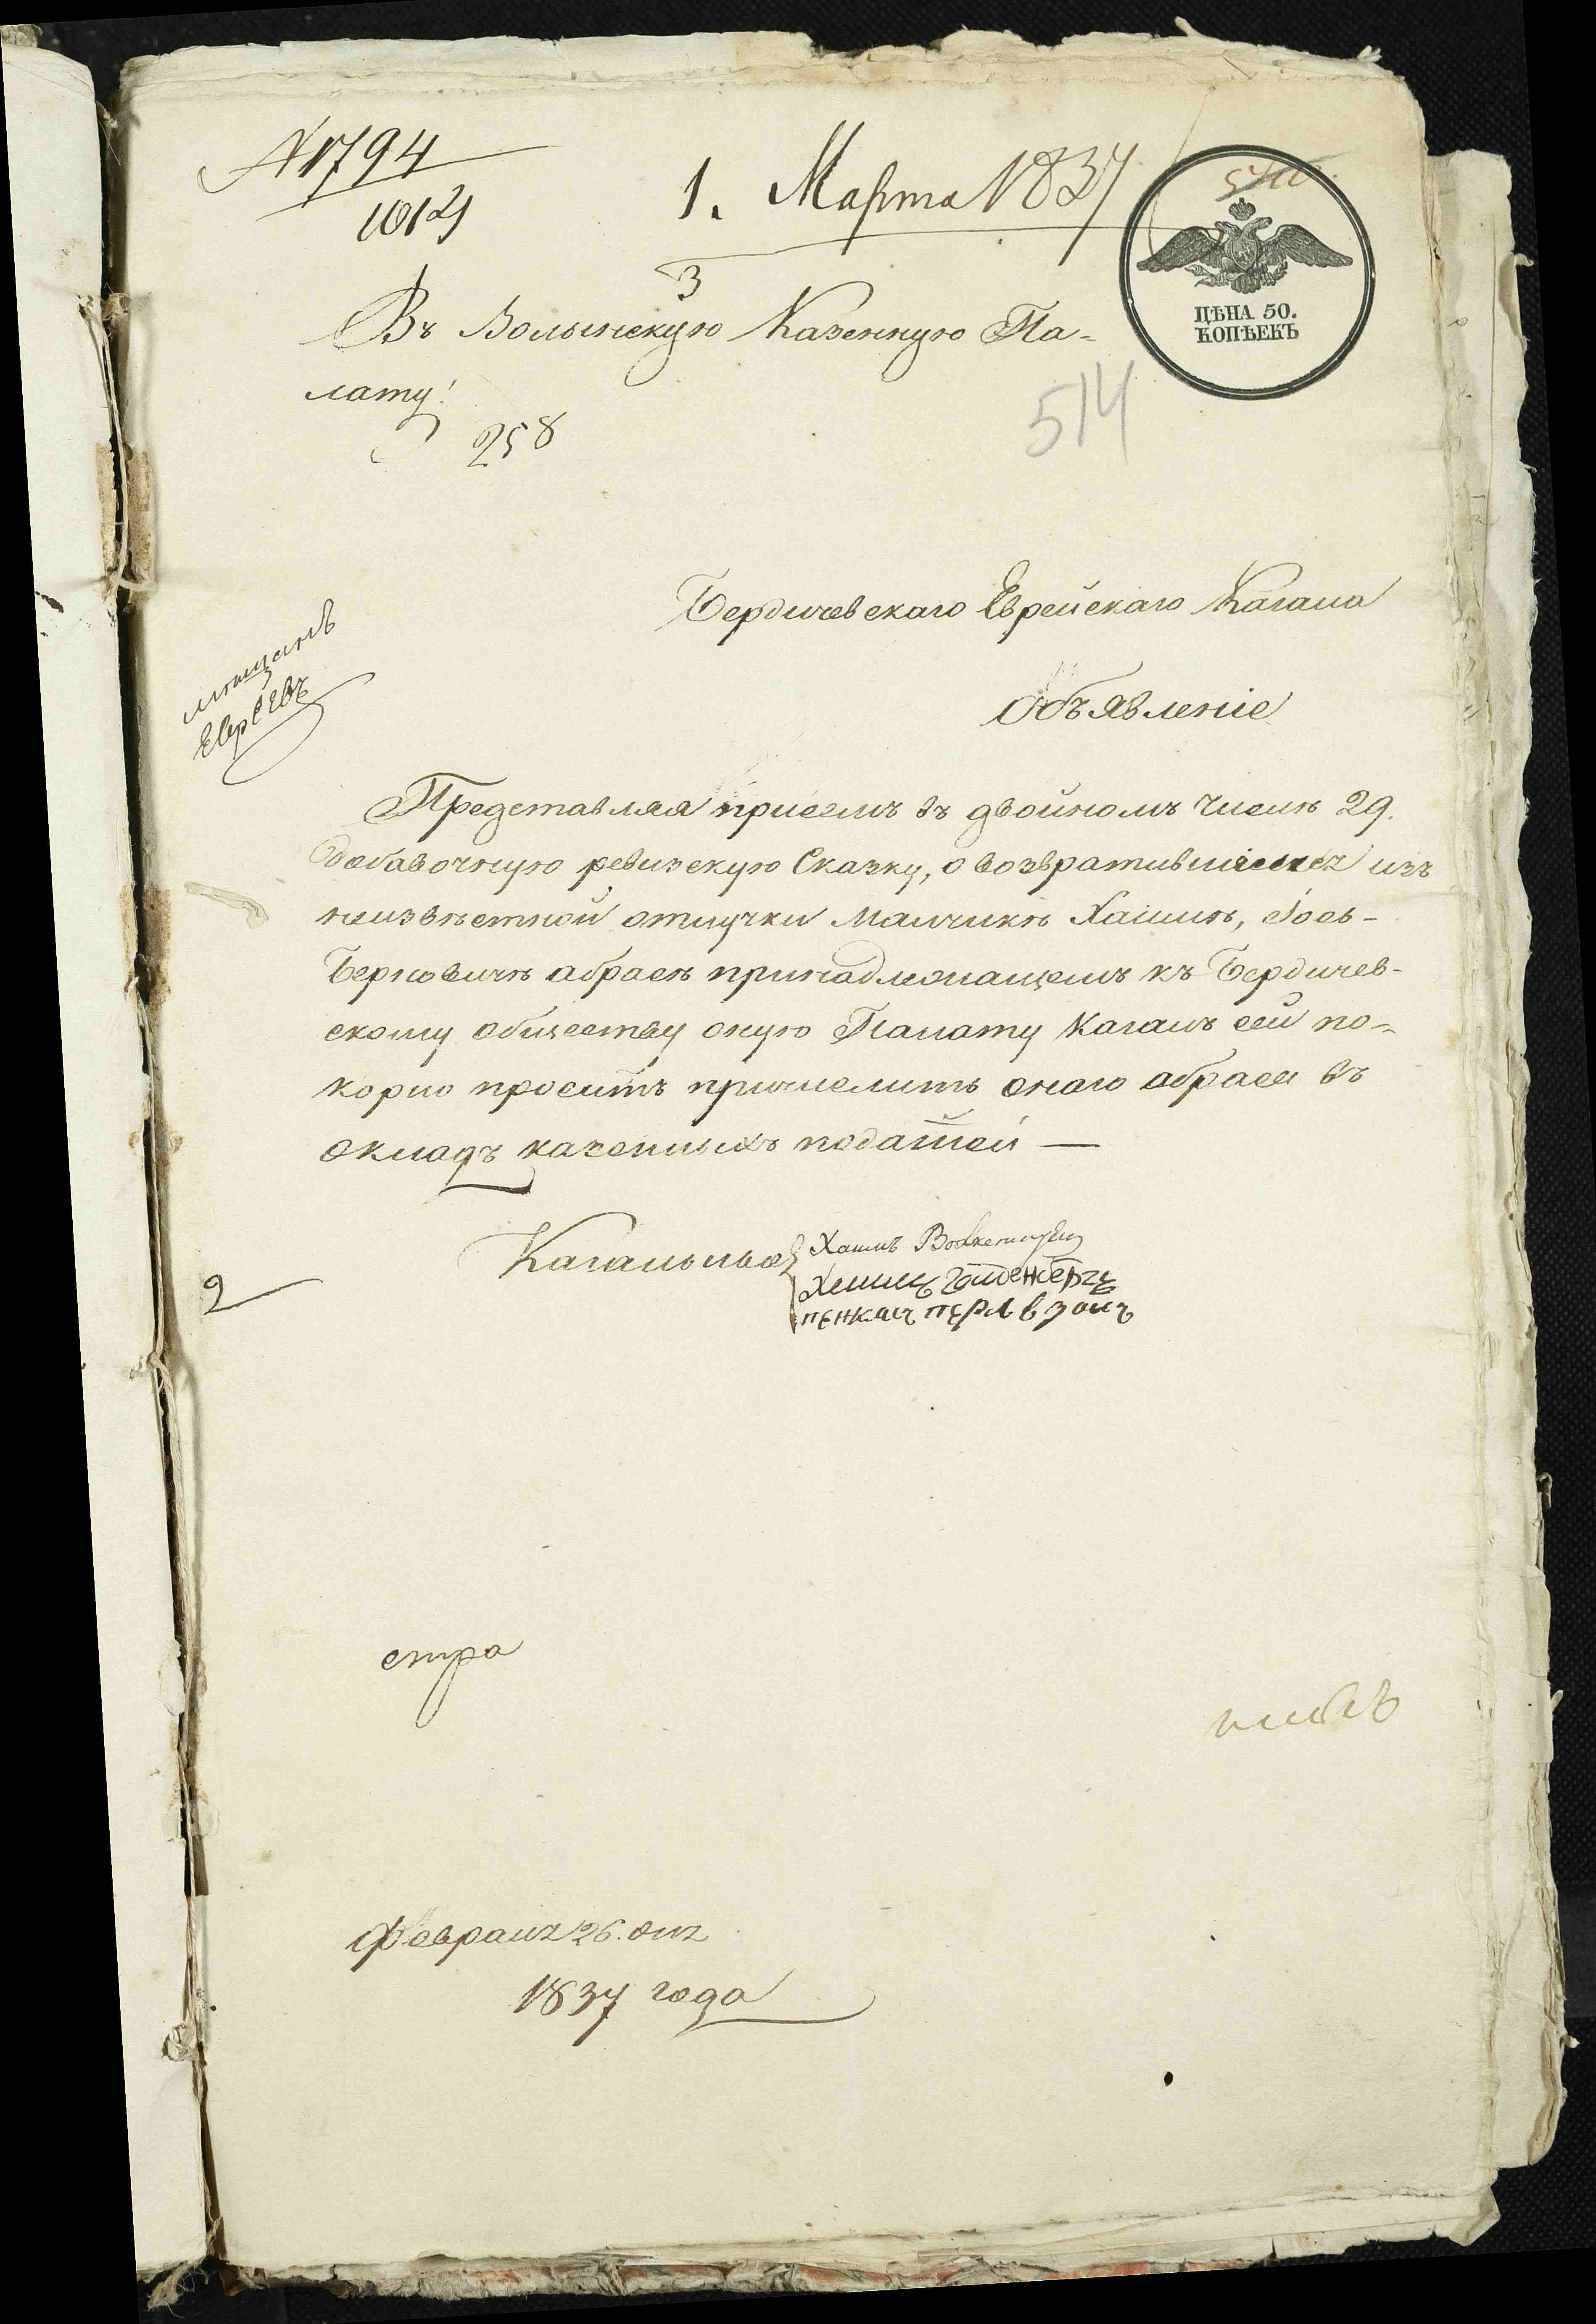 № 1794
1012
1. Марта 1837
3
ЦѢНА 50.
КОПѢЕКЪ
Въ Волынскую Казенную Па-
лату!
258
514
Бердичевскаго Еврейскаго Кагала
мещанъ
Евреевъ
Объявленіе
Представляя присемъ въ двойномъ числѣ 29.
добавочную ревизскую Сказку, о возвратившемся изъ
неизвѣстной отлучки Малчикѣ Хаимѣ, Іось-
Берковичѣ абрасѣ принадлежащемъ къ Бердичев-
скому обществу оную Палату Кагалъ сей по-
корно проситъ причислить онаго абрася въ
окладъ казенныхъ податей —
Кагальные Хаимъ
2
стра
Февраля 26. дня
1837 года